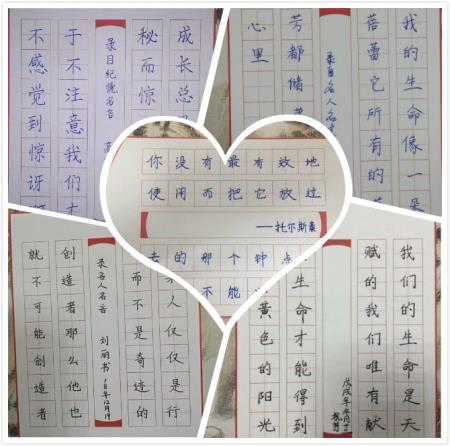 成长总
秘而惊
录目纪德名言
于不注意我们才
不感觉到惊讶
我的生命像一朵
蓓蕾它所有的
录自名人名言
芳都储
心里
你没有最有效地
使用而把它放过
——托尔斯泰
去的那个钟点
不能
人仅仅是行
而不是奇迹的
录名人名言 刘丽书
创造者那么他也
就不可能创造者
我们的生命是天
赋的我们唯有献
戊戌年
生命才能得到
黄色的阳光